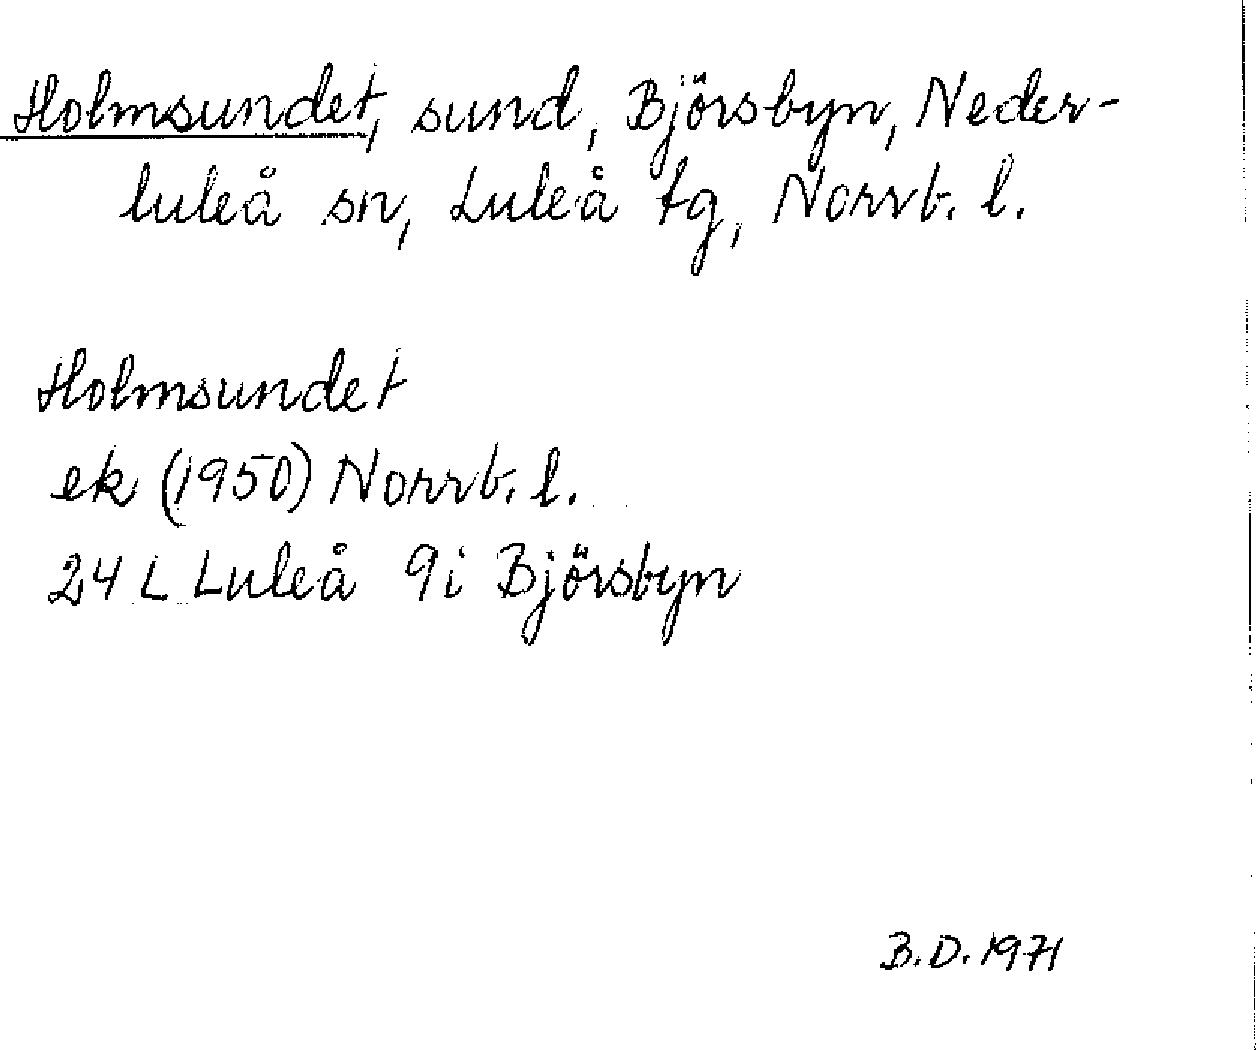 Holmsundet, sund, Björsbyn, Neder-
luleå sn, Luleå tg, Norrb. l.
Holmsundet
ek (1950) Norrb. l.
24 L Luleå 9i Björsbyn
B.D. 1971